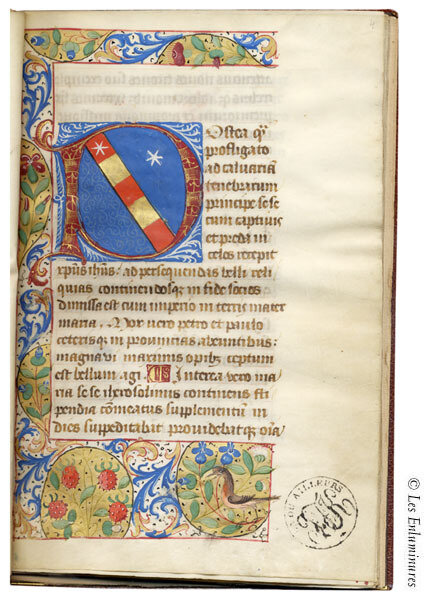 Ostea q̄
profligato
ad calvariā
tenebrarum
principe sese
cum captivis
et preda in
celos recepit
xpūs ihūs: ad persequendas belli reli
quias continendosq; in fide socios
dimissa est cum imperio in terris mater
maria. Mox vero petro et paulo
ceterisq; in provincias abeuntibus:
magna vi maximis opib; ceptum
est bellum agi. Interea vero ma
ria se se iherosolimis continens sti
pendia comeatus supplementum in
dies suppeditabat providebatq; oīa
DU AILLEURS
© Les Enluminures